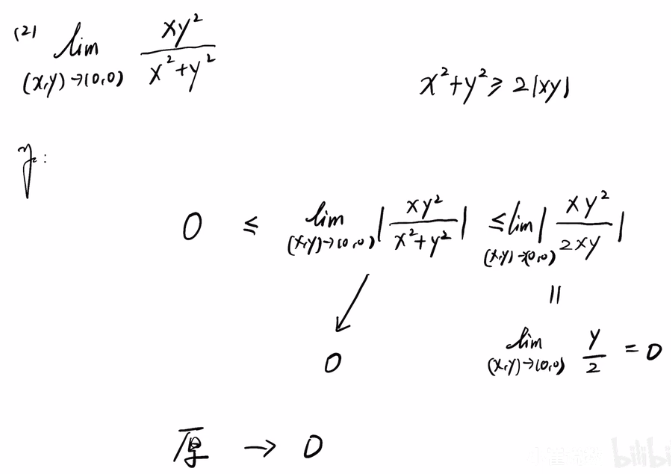 (2) lim_{(x,y)→(0,0)} \frac{xy^2}{x^2+y^2}
x^2+y^2 ≥ 2|xy|
0 ≤ lim_{(x,y)→(0,0)} |\frac{xy^2}{x^2+y^2}| ≤ lim_{(x,y)→(0,0)} |\frac{xy^2}{2xy}|
↙ =
0 lim_{(x,y)→(0,0)} \frac{y}{2} = 0
原 → 0
bilibili